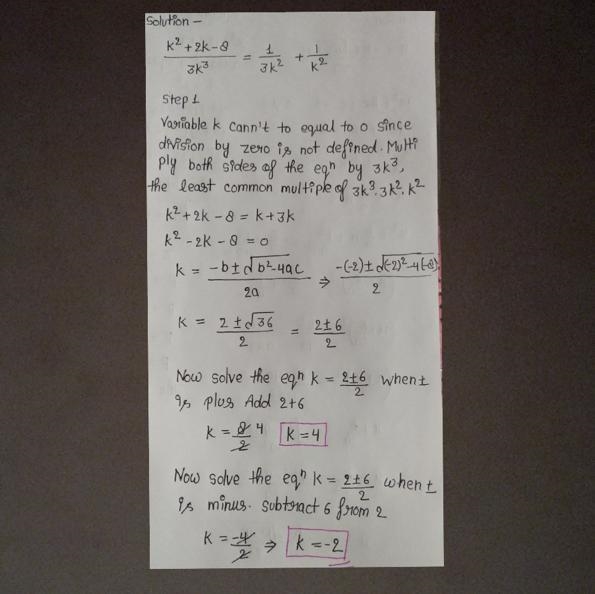 Solution –
k² + 2k – 8 / 3k³ = 1 / 3k² + 1 / k²
Step 1
Variable k cann't to equal to 0 since
division by zero is not defined. Multi
ply both sides of the eqⁿ by 3k³,
the least common multiple of 3k³. 3k², k²
k² + 2k – 8 = k + 3k
k² – 2k – 8 = 0
k = –b ± √b² – 4ac / 2a ⇒ –(–2) ± √(–2)² – 4(–8) / 2
k = 2 ± √36 / 2 = 2 ± 6 / 2
Now solve the eqⁿ k = 2 ± 6 / 2 when ±
is plus Add 2+6
k = 8 / 2 4 k = 4
Now solve the eqⁿ k = 2 ± 6 / 2 when ±
is minus. subtract 6 from 2
k = –4 / 2 ⇒ k = –2